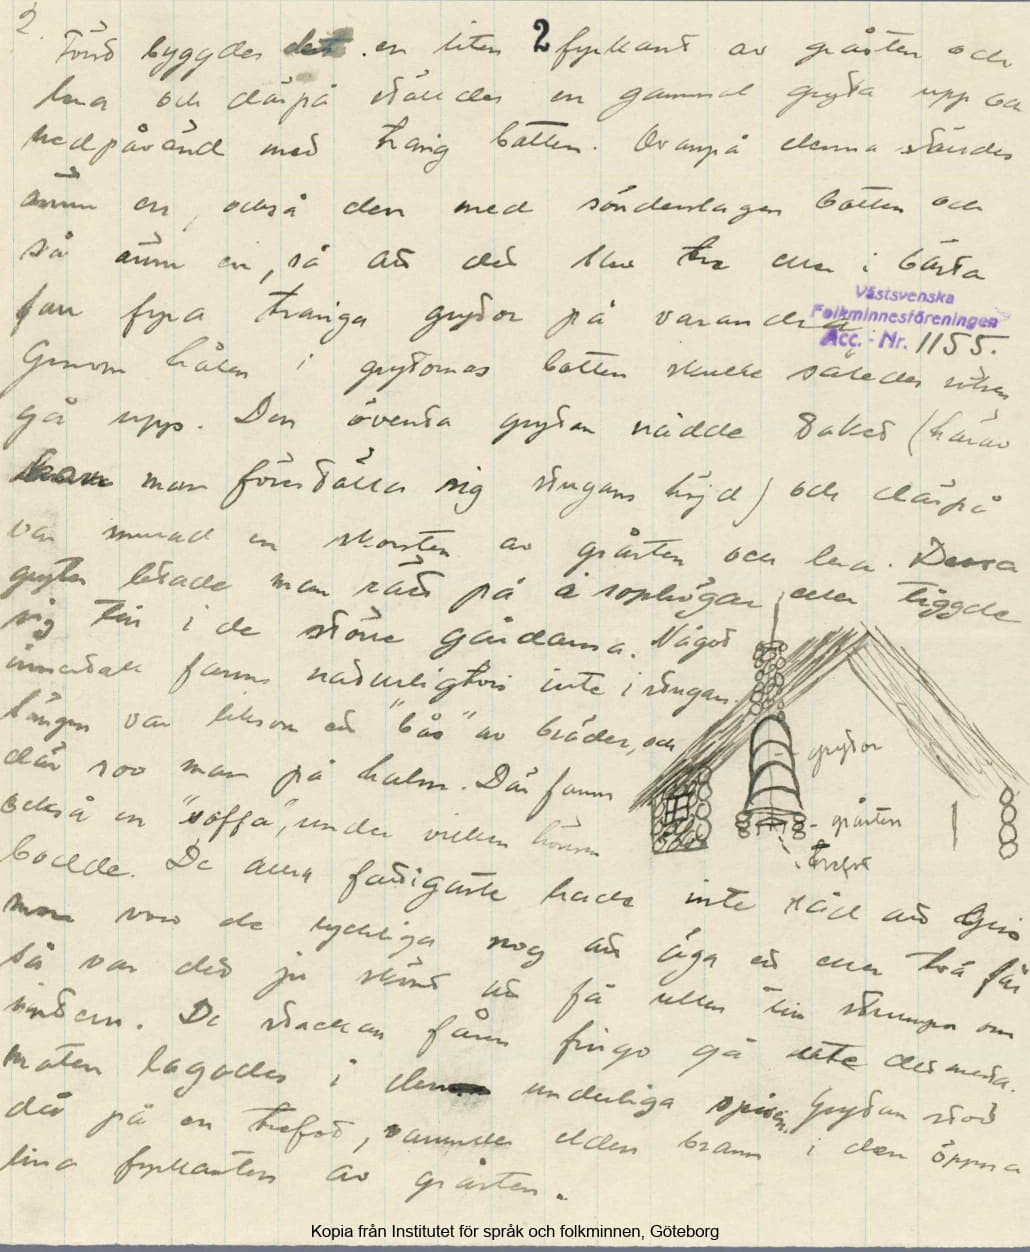 2.
2
Först byggdes det en liten fyrkant av gråsten och
lera och därpå ställdes en gammal gryta upp och
nedpåvänd med trasig botten. Ovanpå denna ställdes
ännu en, också den med sönderslagen botten och
så ännu en, så att det blev tre eller i bästa
fall fyra trasiga grytor på varandra.
Västsvenska
Folkminnesföreningen
Acc. - Nr. 1155.
Genom hålen i grytornas botten skulle således röken
gå upp. Den översta grytan nådde taket (härav
kan man föreställa sig stugans höjd) och därpå
var murad en skorsten av gråsten och lera. Dessa
grytor letade man rätt på å sophögar eller tiggde
sig till i de större gårdarna. Något
innertak fanns naturligtvis inte i stugan
Sängen var liksom ett "bås" av bräder, och
där sov man på halm. Där fanns
också en "soffa", under vilken hönsen
bodde. De allra fattigaste hade inte råd att
men voro de lyckliga nog att äga ett eller två får
så var det ju skönt att få ullen till strumpor om
vintern. De stackars fåren fingo gå ute det mesta.
Maten lagades i den underliga spisen. Grytan stod
där på en trefot, varunder elden brann i den öppna
lilla fyrkanten av gråsten.
grytor
gråsten
trefot
Kopia från Institutet för språk och folkminnen, Göteborg